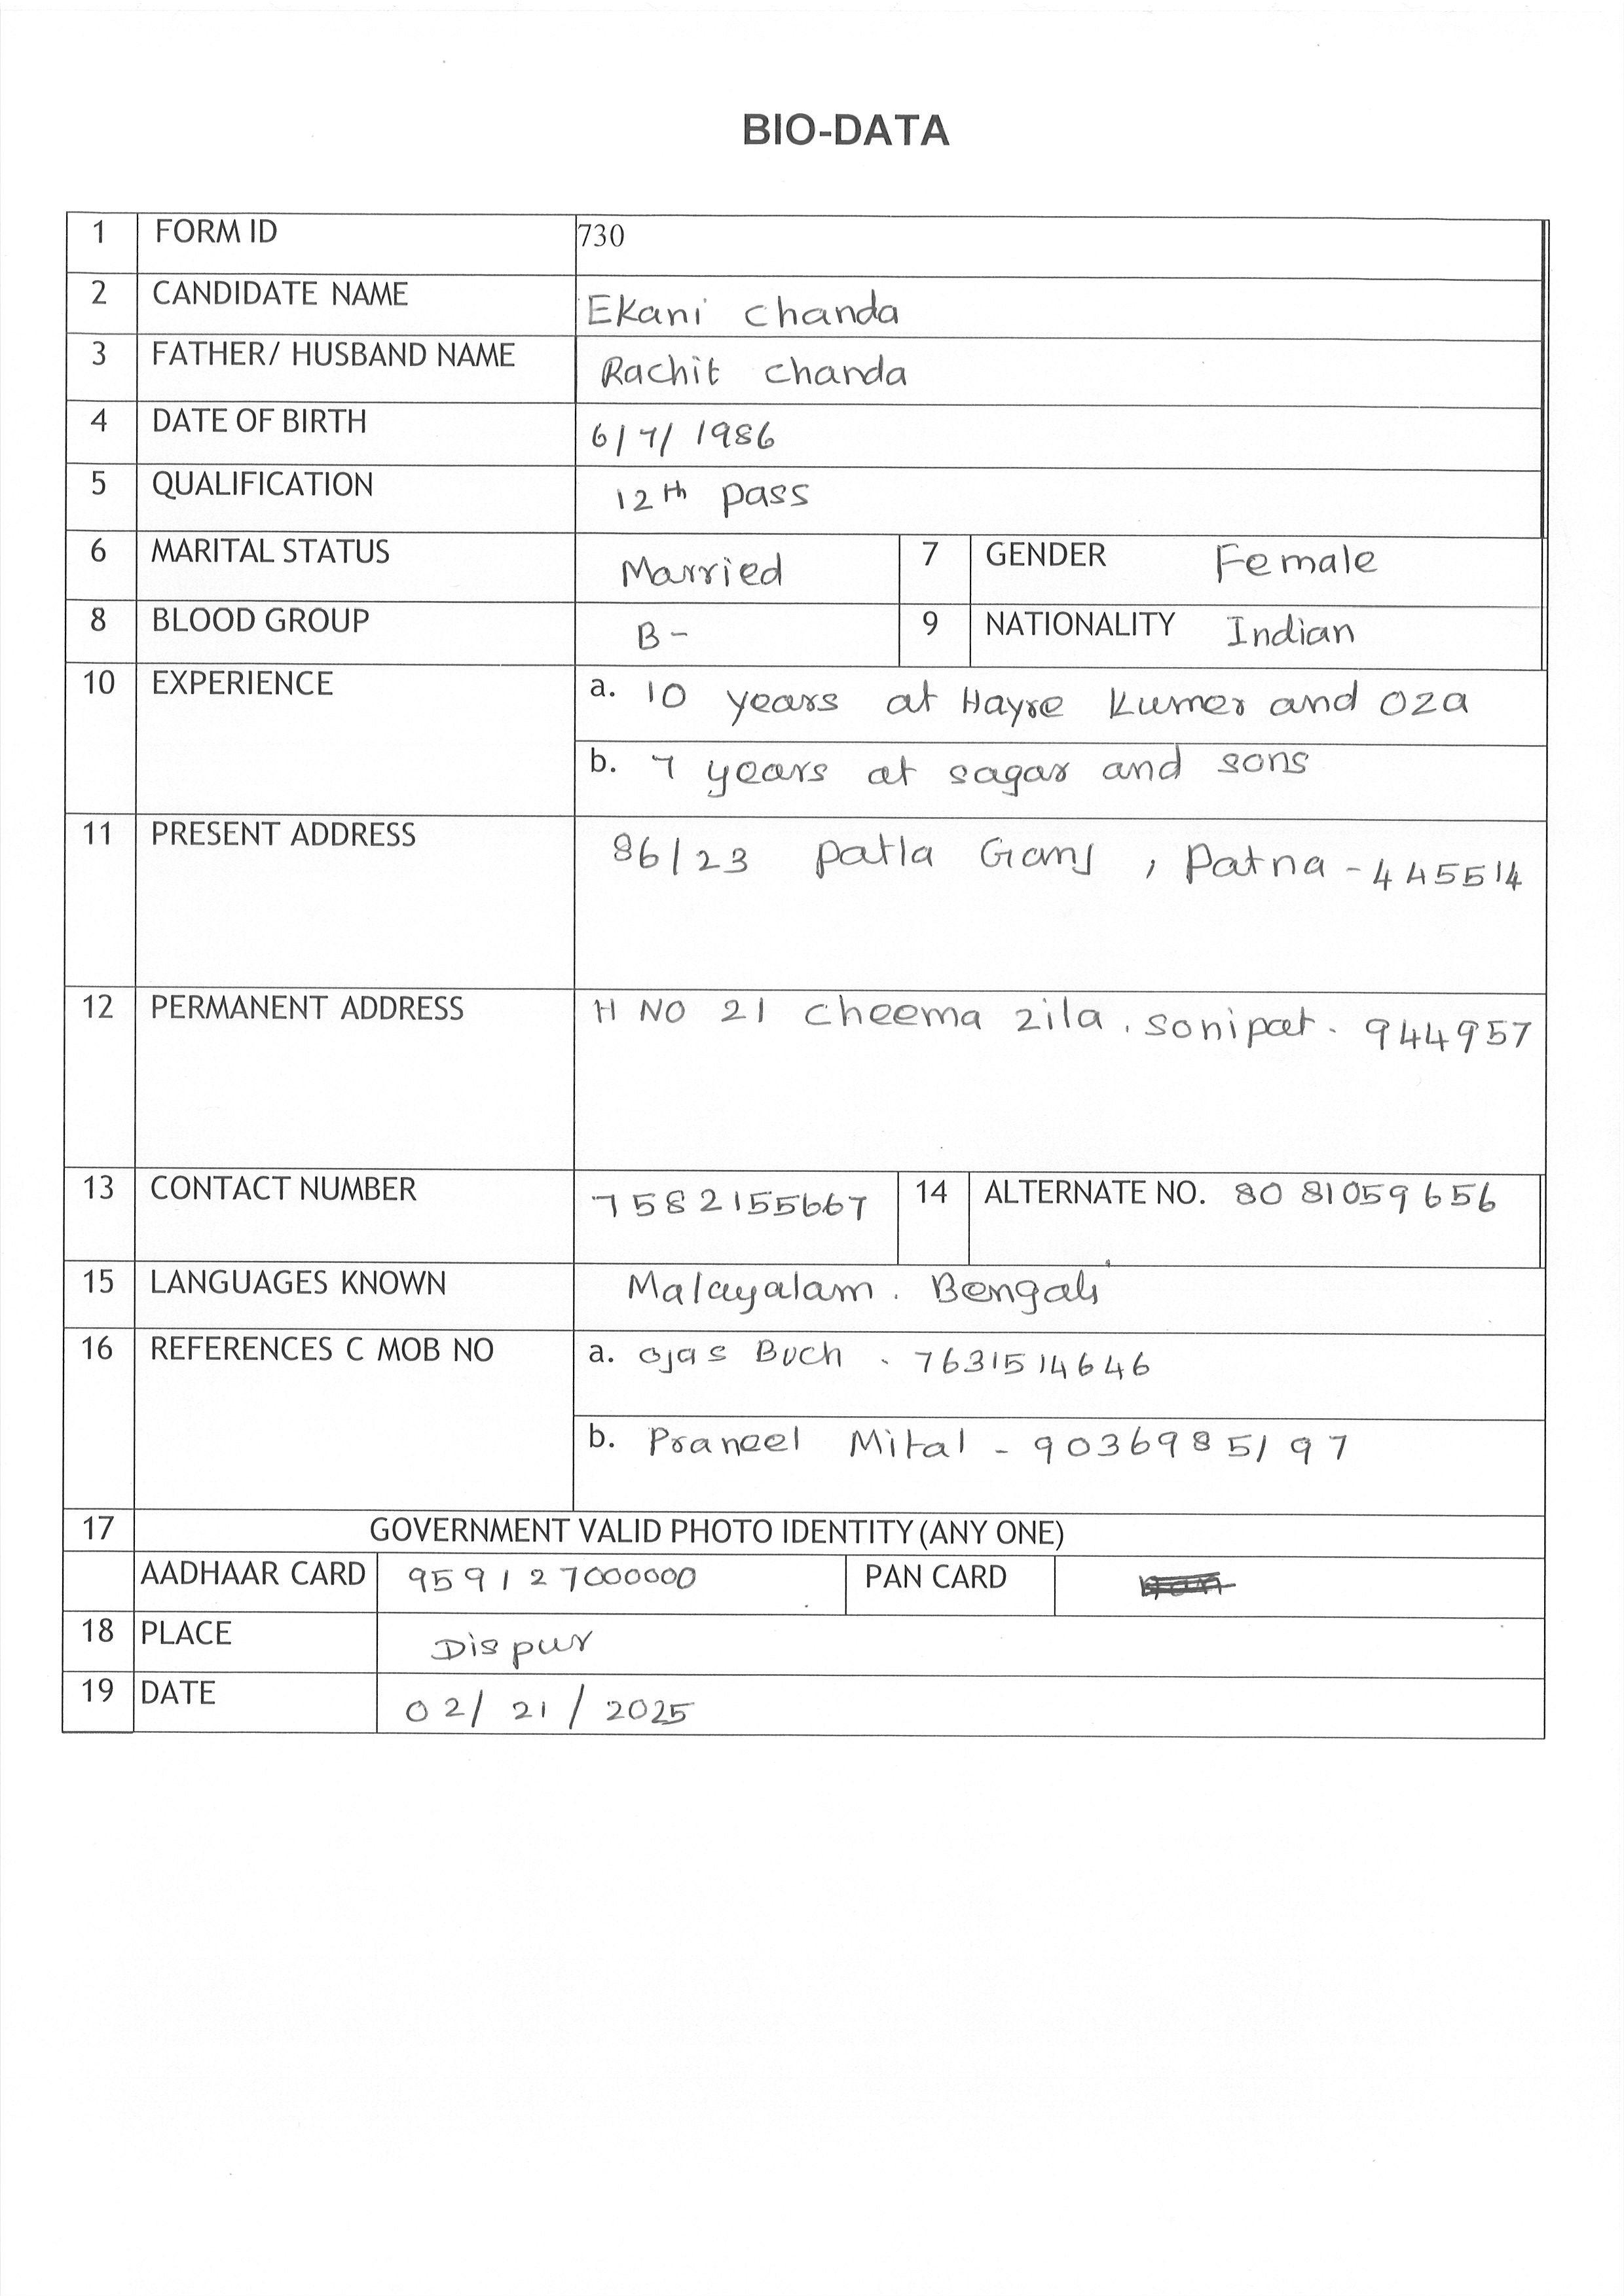 BIO-DATA
1 FORM ID 730
2 CANDIDATE NAME Ekani chanda
3 FATHER/ HUSBAND NAME Rachit chanda
4 DATE OF BIRTH 6/7/ 1986
5 QUALIFICATION 12th pass
6 MARITAL STATUS Married 7 GENDER Female
8 BLOOD GROUP B- 9 NATIONALITY Indian
10 EXPERIENCE a. 10 years at Hayre Kumer and Oza
b. 7 years at sagar and sons
11 PRESENT ADDRESS 86/23 patla Ganj , Patna - 445514
12 PERMANENT ADDRESS H NO 21 cheema zila. sonipat. 944957
13 CONTACT NUMBER 7582155667 14 ALTERNATE NO. 8081059656
15 LANGUAGES KNOWN Malayalam. Bengali
16 REFERENCES C MOB NO a. ojas Buch . 7631514646
b. Praneel Mital - 9036985197
17 GOVERNMENT VALID PHOTO IDENTITY (ANY ONE)
AADHAAR CARD 959127000000 PAN CARD
18 PLACE Dispur
19 DATE 02/ 21 / 2025